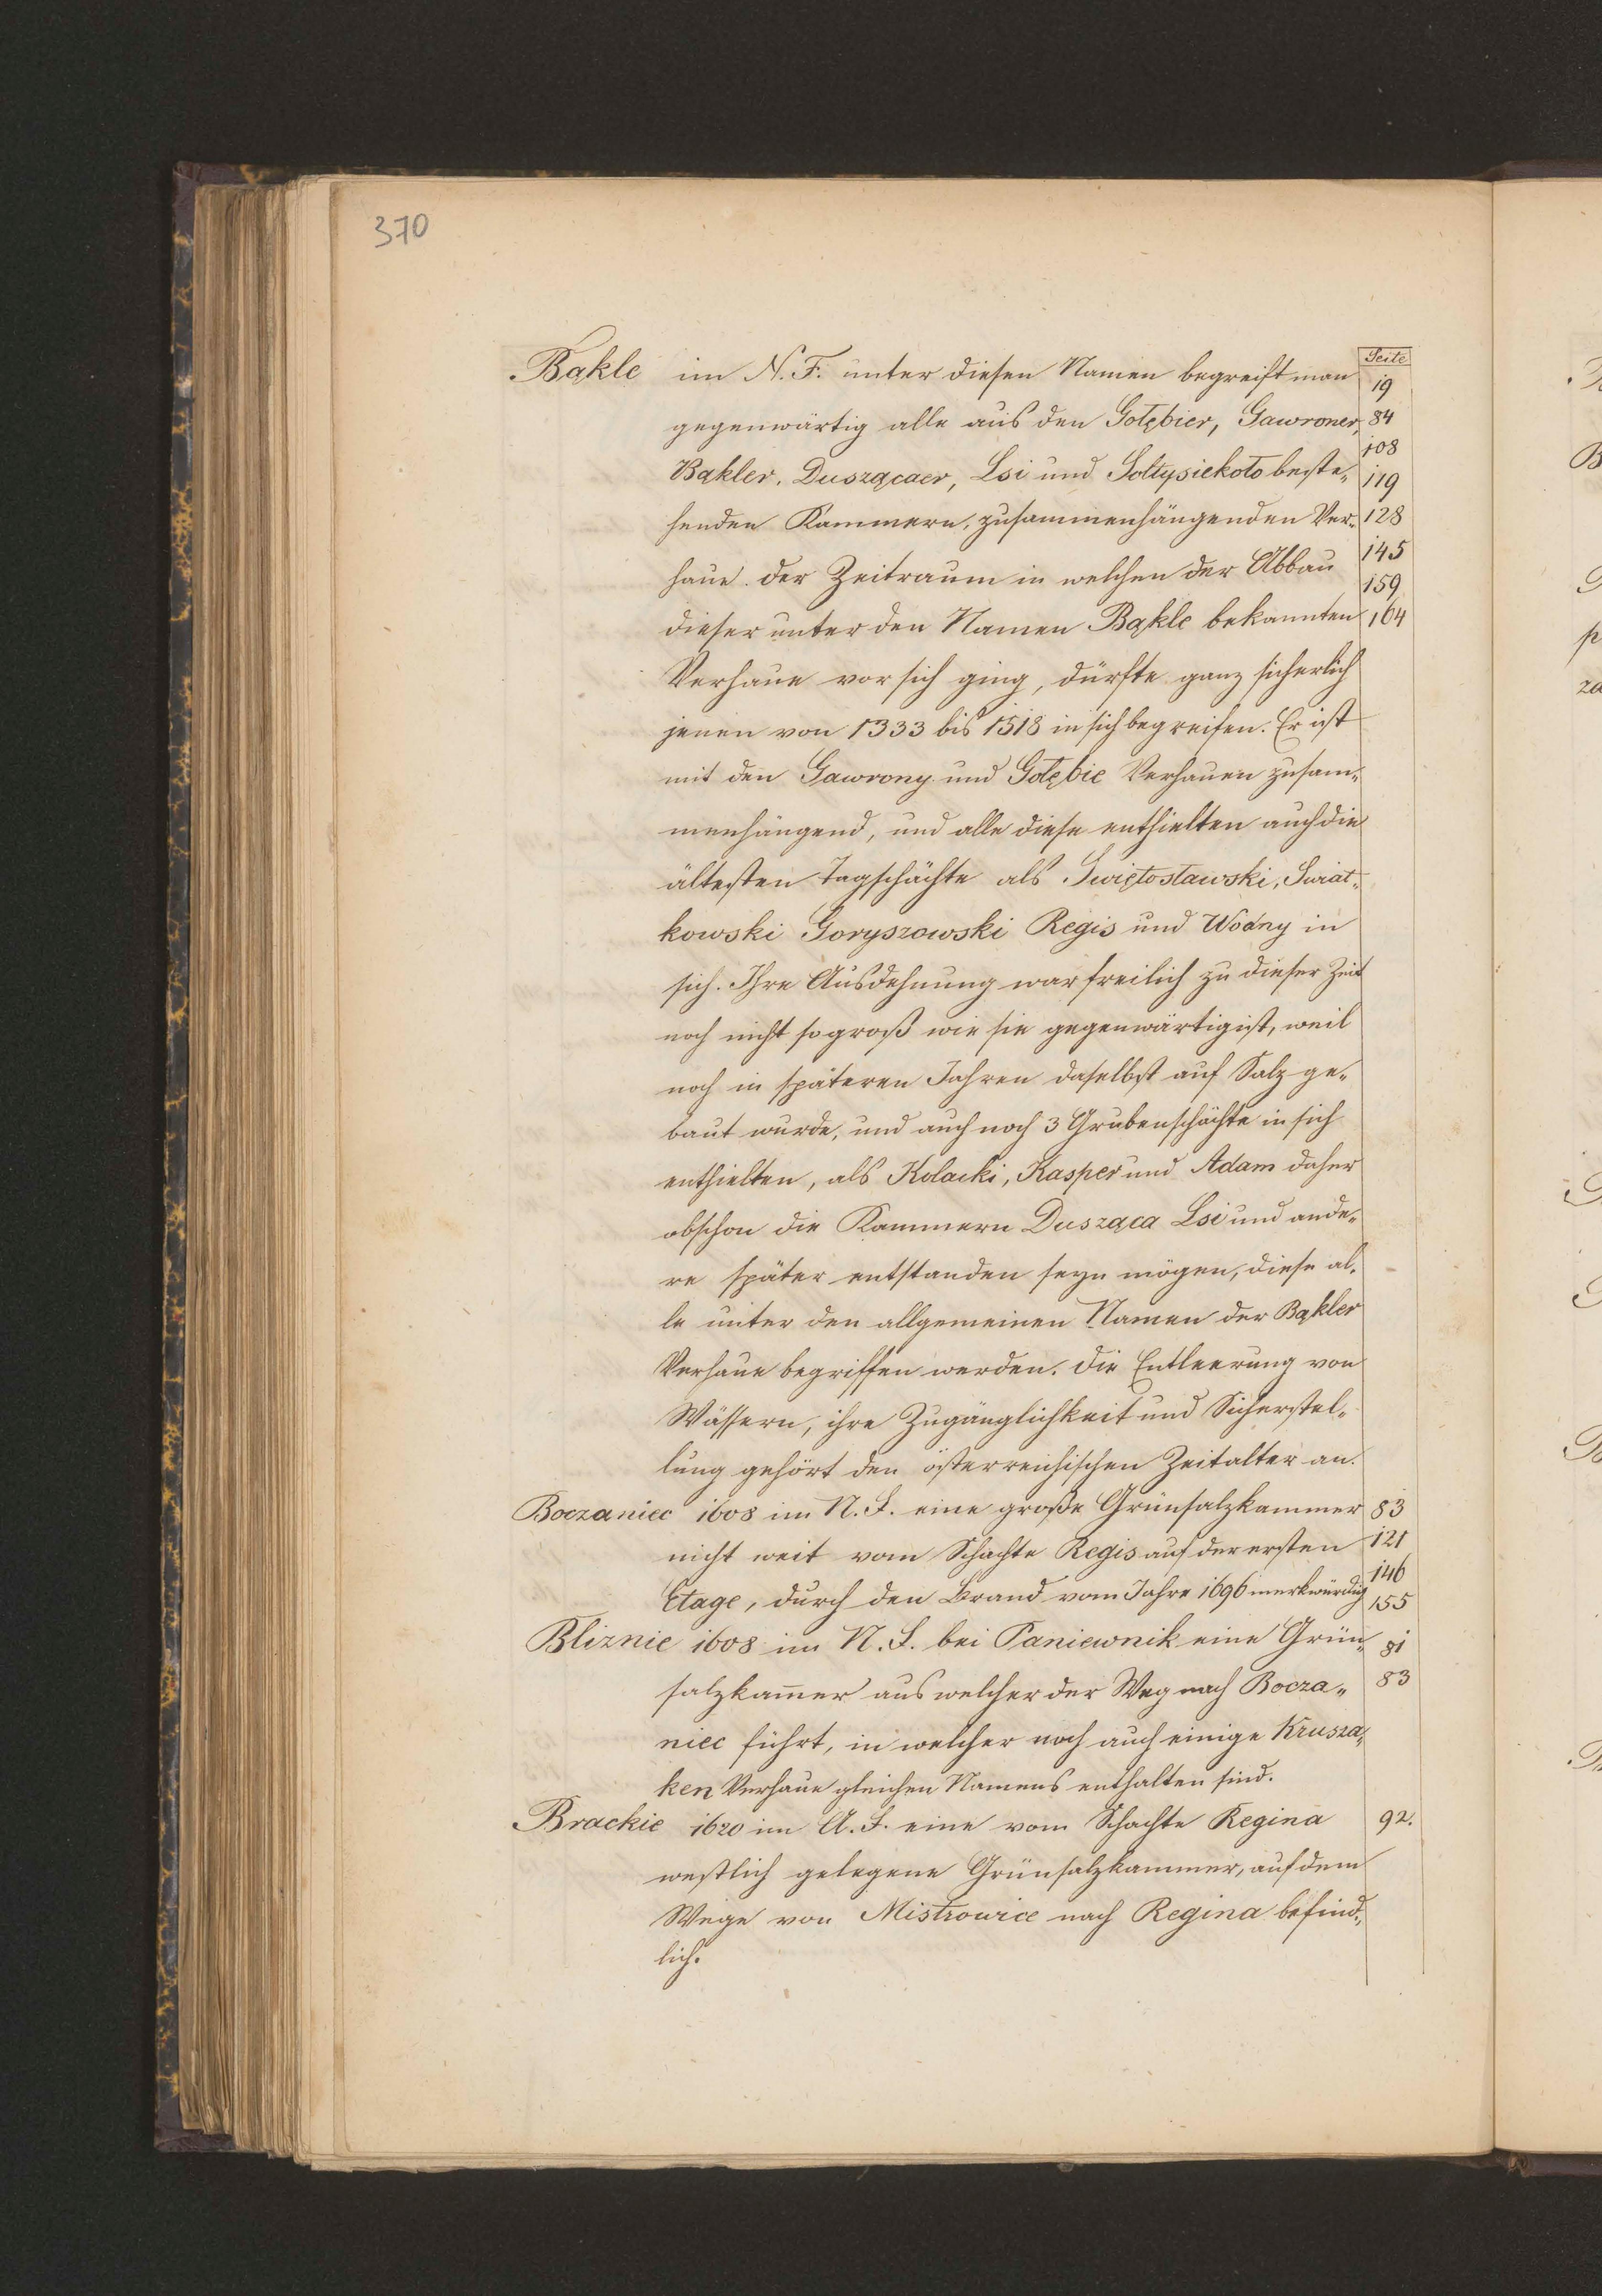 370
Seite
Bąkle im N. F. unter diesen Namen begreift man 19
gegenwärtig alle aus den Gołębier, Gawroner, 84
108
Bąkler, Duszącaer, Lsi und Soltysiekoło beste„ 119
henden Kammern, zusammenhängenden Ver„ 128
haue. der Zeitraum in welchen der Abbau 145
159
dieser unter den Namen Bąkle bekannten 164
Verhaue vor sich ging, dürfte ganz sicherlich
jenen von 1333 bis 1518 in sich begreifen. Er ist
mit den Gawrony und Gołębie Verhauen zusam„
menhängend, und alle diese enthielten auch die
ältesten Tagschächte als Swiętosławski, Swiat„
kowski Goryszowski Regis und Wodny in
sich. Ihre Ausdehnung war freilich zu dieser Zeit
noch nicht so groß wie sie gegenwärtig ist, weil
noch in späteren Jahren daselbst auf Salz ge„
baut wurde, und auch noch 3 Grubenschächte in sich
enthielten, als Kolacki, Kasper und Adam daher
obschon die Kammern Dusząca Lsi und ande„
re später entstanden seyn mögen, diese al„
le unter den allgemeinen Namen der Bąkler
Verhaue begriffen werden. Die Entleerung von
Wässern, ihre Zugänglichkeit und Sicherstel„
lung gehört den österreichischen Zeitalter an.
Boczaniec 1608 im N. F. eine große Grünsalzkammer 83
nicht weit vom Schachte Regis auf der ersten 121
146
Etage, durch den Brand vom Jahre 1696 merkwürdig 155
Bliznie 1608 im N. F. bei Paniewnik eine Grün„ 81
salzkam̅er aus welcher der Weg nach Bocza„ 83
niec führt, in welcher noch auch einige Krusza„
ken Verhaue gleichen Namens enthalten sind.
Brackie 1620 im A. F. eine vom Schachte Regina 92.
westlich gelegene Grünsalzkammer, auf dem
Wege von Mistrowice nach Regina befind„
lich.